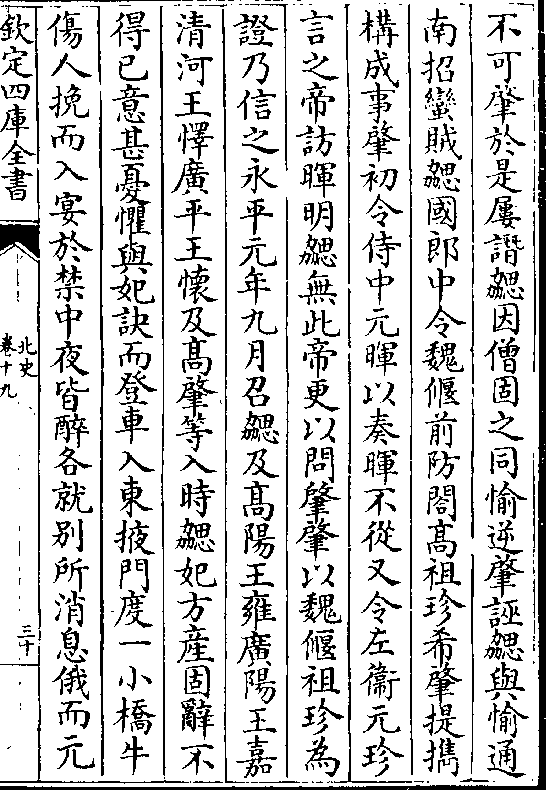 不可肇於是屢譖勰因僧固之同愉逆肇誣勰與愉通
南招蠻賊勰國郎中令魏偃前防閤髙祖珍希肇提擕
構成事肇初令侍中元暉以奏暉不從又令左衞元珍
言之帝訪暉明勰無此帝更以問肇肇以魏偃祖珍為
證乃信之永平元年九月召勰及髙陽王雍廣陽王嘉
清河王懌廣平王懷及髙肇等入時勰妃方産固辭不
得已意甚憂懼與妃訣而登車入東掖門度一小橋牛
傷人挽而入宴於禁中夜皆醉各就别所消息俄而元
欽定四庫全書
北史
卷十九
三十